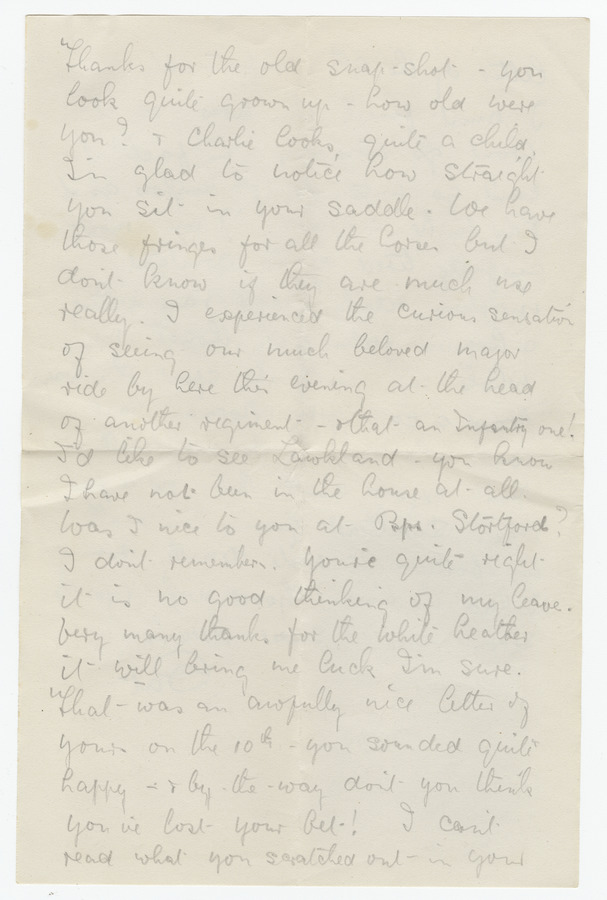 Thanks for the old snap-shot - you
look quite grown up - how old were
you? & Charlie looks quite a child.
I'm glad to notice how straight
you sit in your saddle. We have
those fringes for all the horses but I
don't know if they are much use
really. I experienced the curious sensation
of seeing our much beloved major
ride by here this evening at the head
of another regiment - & that an Infantry one!
I'd like to see Lawkland - you know
I have not been in the house at all.
Was I nice to you at Bps. Stortford?
I don't remember. You're quite right
it is no good thinking of my leave.
Very many thanks for the white heather
it will bring me luck I'm sure.
That was an awfully nice letter of
yours on the 10th - you sounded quite
happy - & by-the-way don't you think
you've lost your bet! I can't
read what you scratched out in your